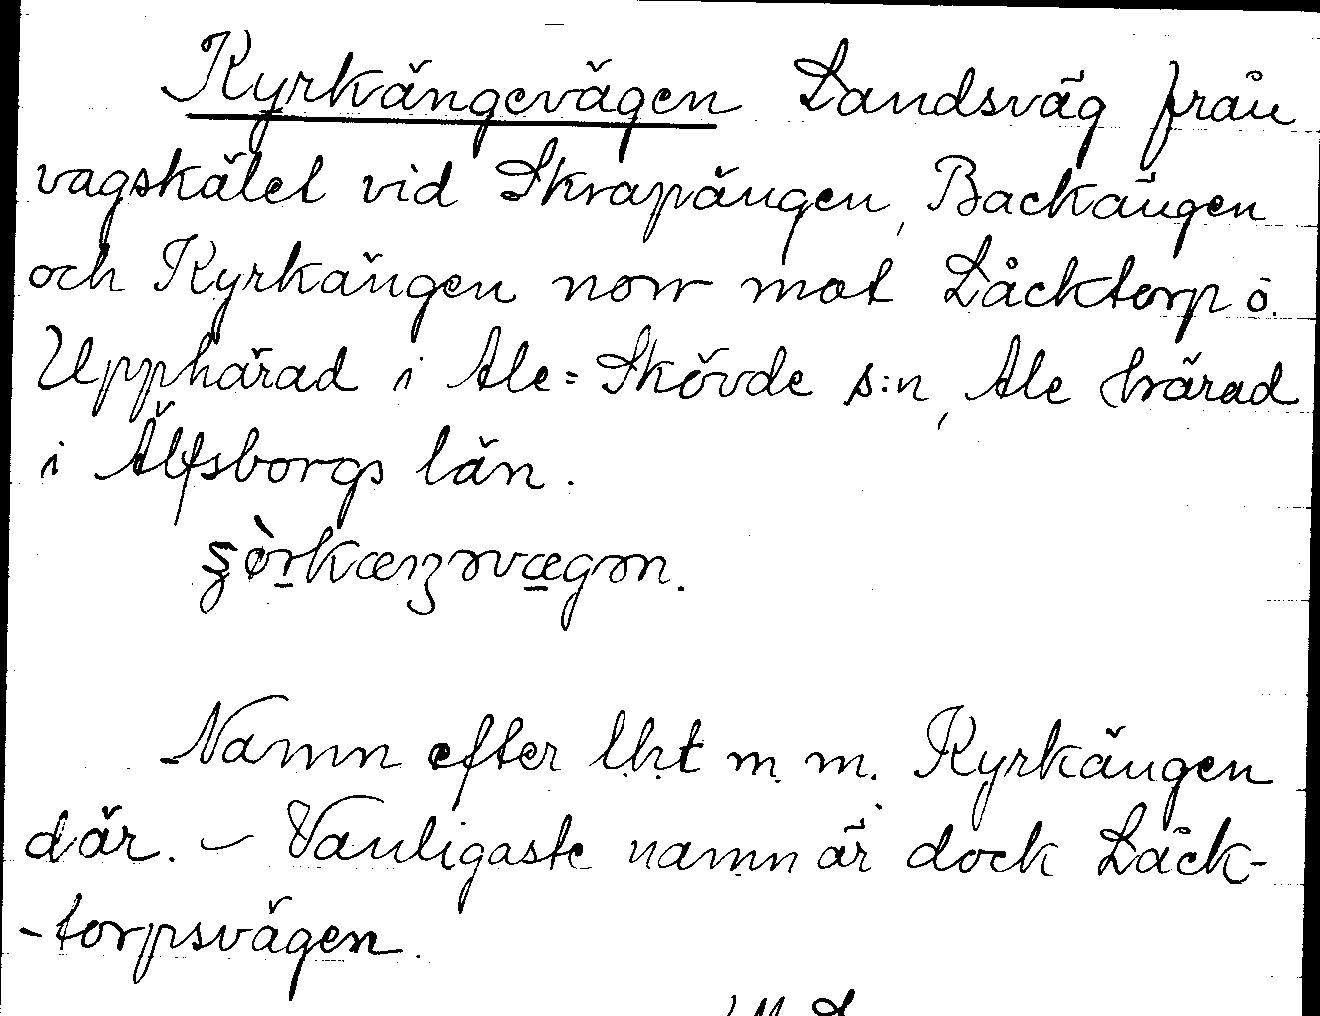 Kyrkängevägen Landsväg från
vagskälet vid Skrapängen, Backängen
och Kyrkängen norr mot Låcktorp o.
Upphärad i Ale=Skövde s:n, Ale härad
i Älfsborgs län.
Namn efter lht m. m. Kyrkängen
där. – Vanligaste namn är dock Låck-
-torpsvägen.